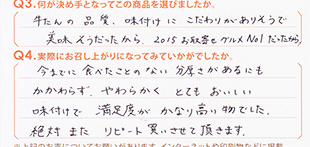 Q3.何が決め手となってこの商品を選びましたか。
牛たんの品質、味付けにこだわりがありそうで
美味そうだったから、2015お取寄せグルメNo1だったから。
Q4.実際にお召し上がりになってみていかがでしたか。
今までに食べたことのない分厚さがあるにも
かかわらず、やわらかくとてもおいしい
味付けで満足度がかなり高い物でした。
絶対またリピート買いさせて頂きます。